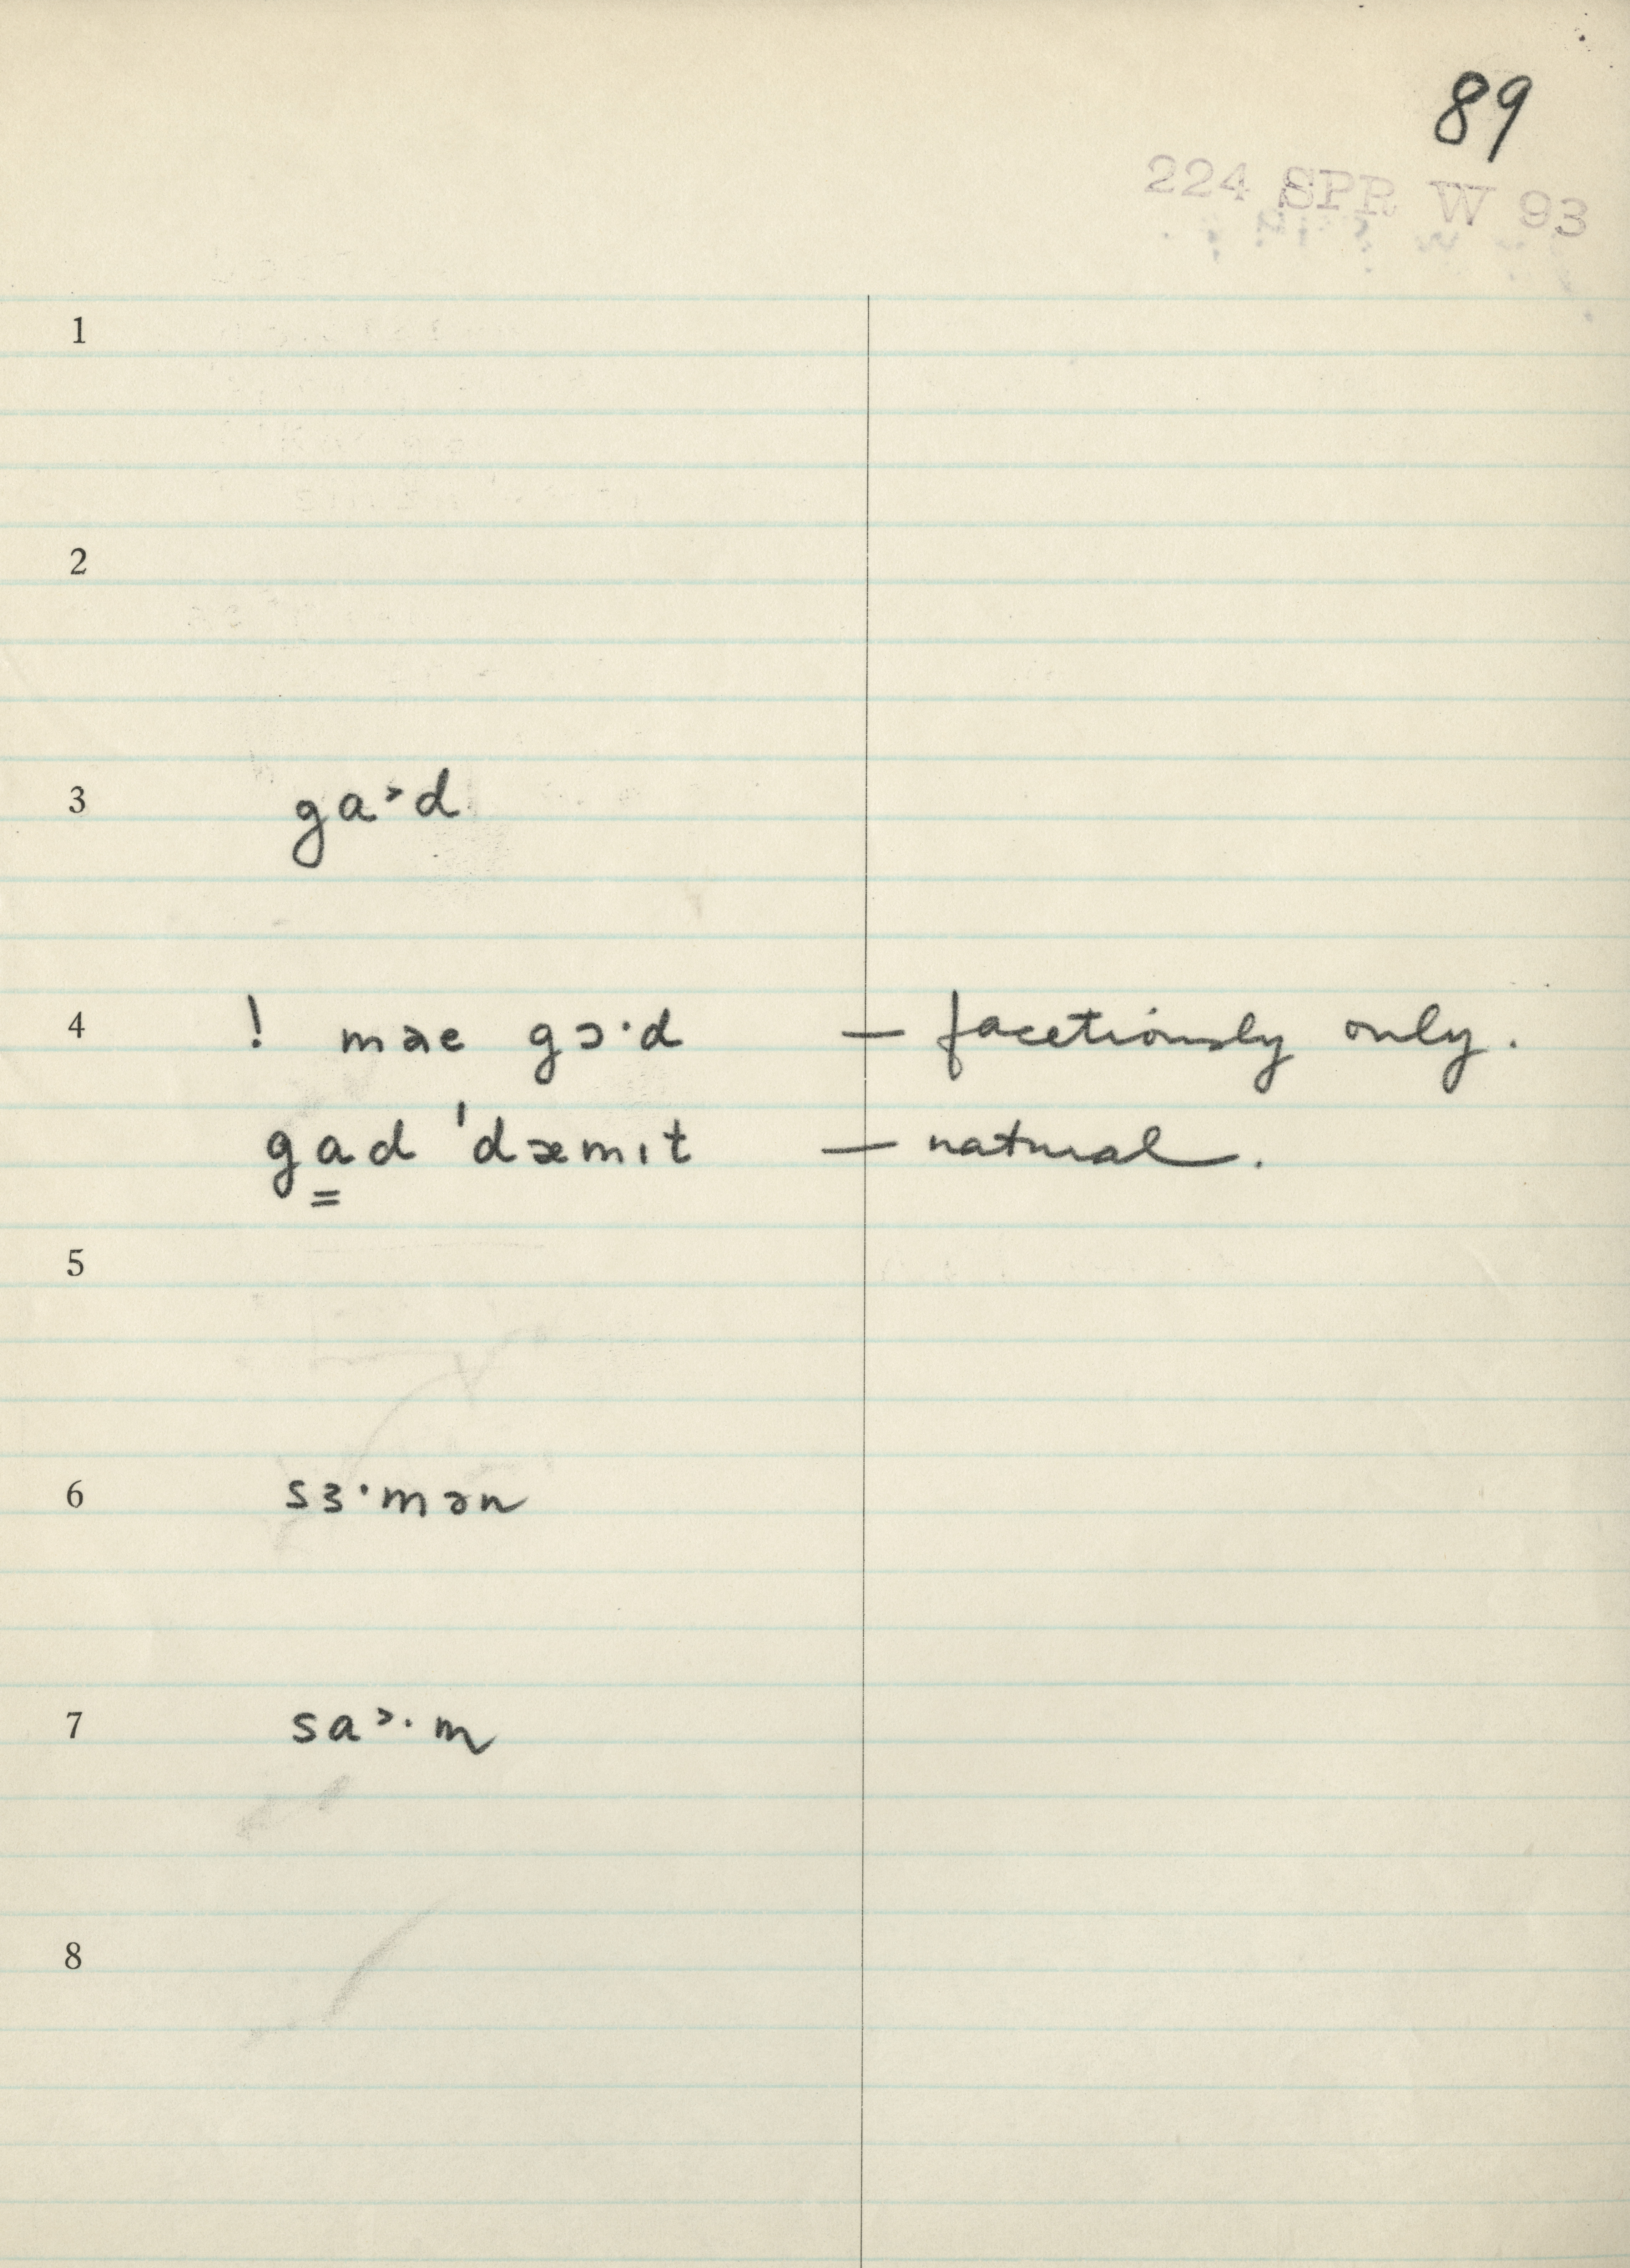 89
224 SPR W 93
1
2
3 ga˃d
4 ! mɜe gɔ·d — facetiously only.
ga̳d ˈdæmɪt — natural.
5
6 sɜ·mən
7 sa˃·m
8